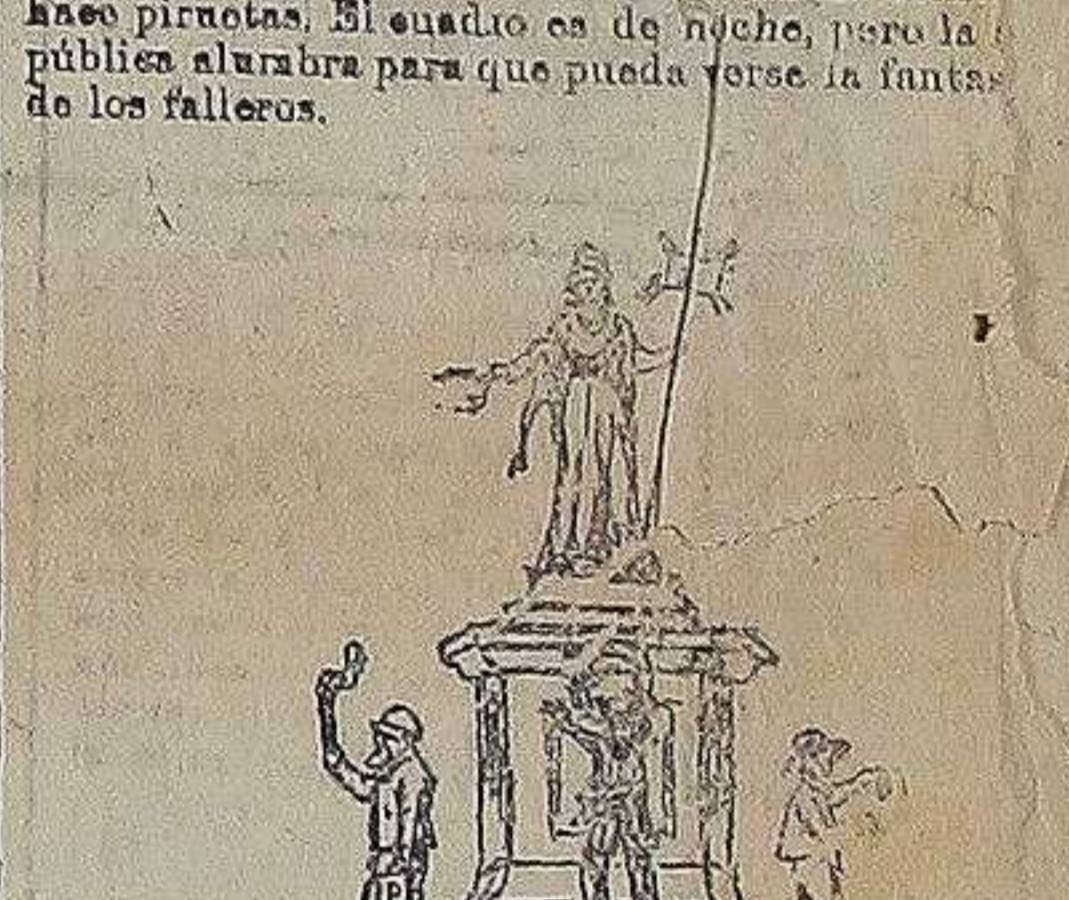 hace piruetas. El cuadro es de noche, pero la
pública alumbra para que pueda verse la fantas
de los falleros.
P